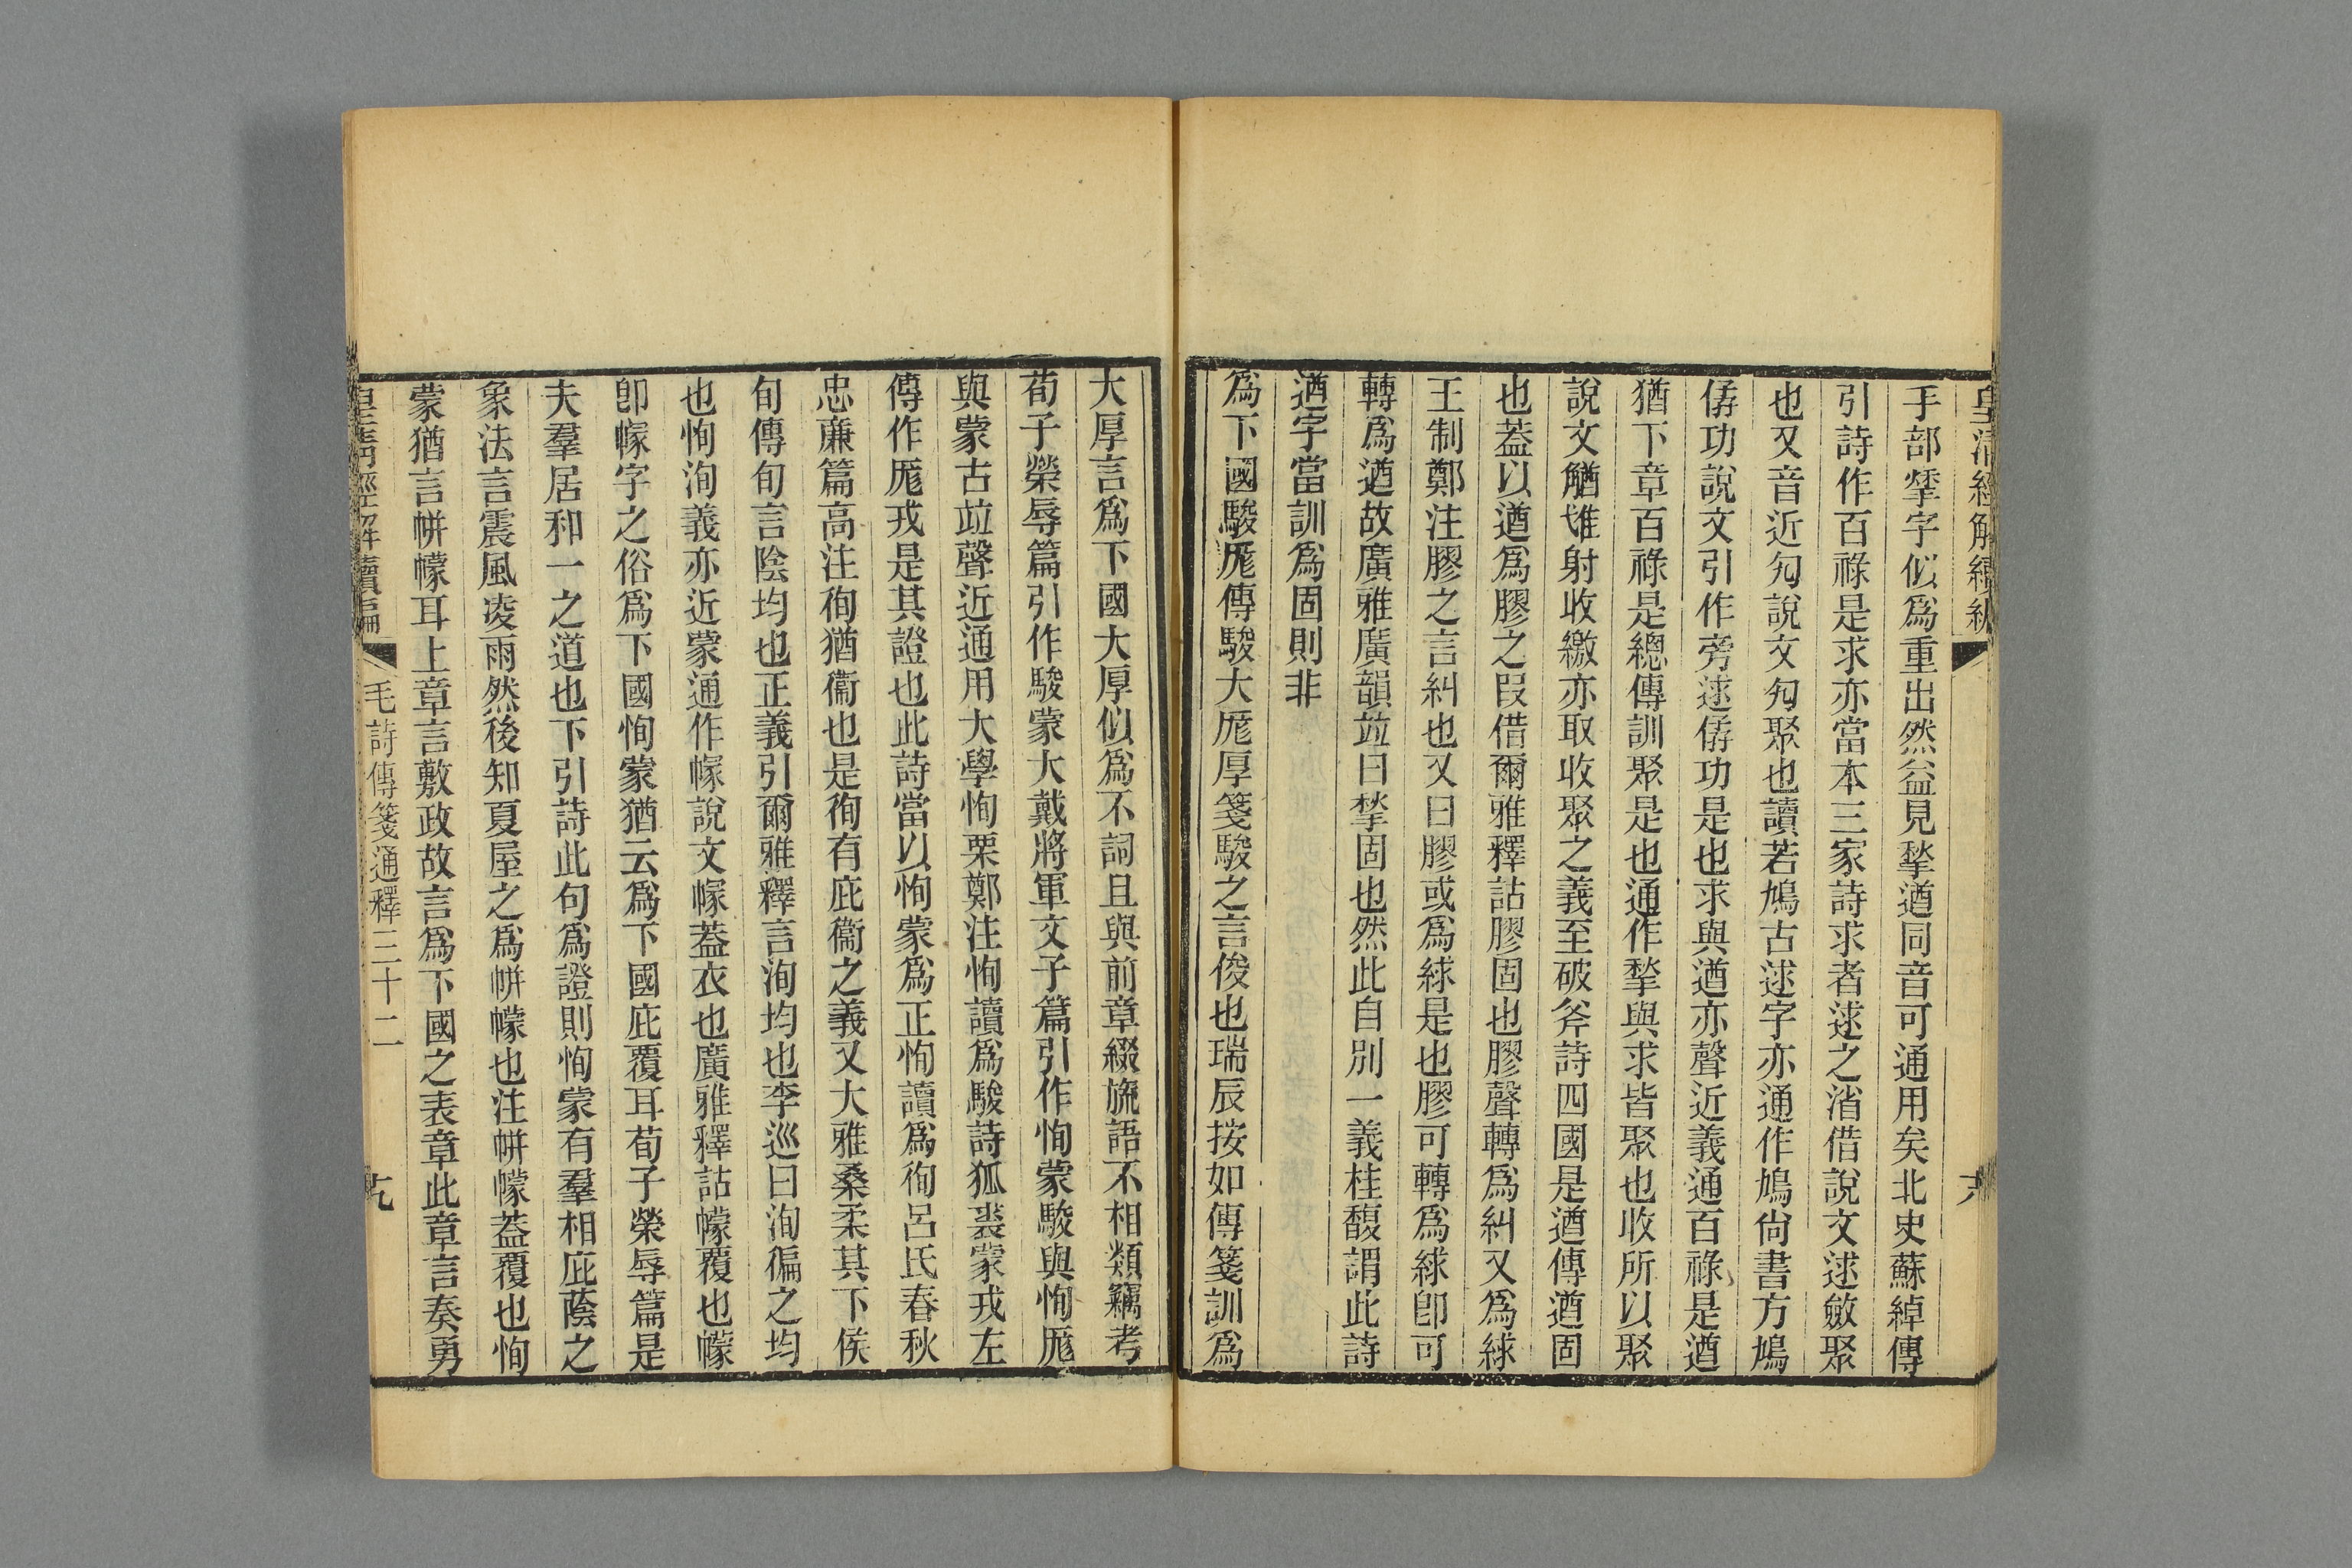 皇清經解續編
手部揫字似爲重出然益見揫遒同音可通用矣北史蘇綽傳
引詩作百祿是求亦當本三家詩求者逑之渻借說文逑斂聚
也又音近勼說文勼聚也讀若鳩古逑字亦通作鳩尙書方鳩
僝功說文引作旁逑僝功是也求與遒亦聲近義通百祿是遒
猶下章百祿是總傳訓聚是也通作揫與求皆聚也收所以聚
說文䌷隿射收繳亦取收聚之義至破斧詩四國是遒傳遒固
也葢以遒爲膠之叚借爾雅釋詁膠固也膠聲轉爲糾又爲絿
王制鄭注膠之言糾也又曰膠或爲絿是也膠可轉爲絿卽可
轉爲遒故廣雅廣韻竝曰揫固也然此自別一義桂馥謂此詩
遒字當訓爲固則非
爲下國駿厖傳駿大厖厚箋駿之言俊也瑞辰按如傳箋訓爲
大厚言爲下國大厚似爲不詞且與前章綴旒語不相類竊考
荀子榮辱篇引作駿蒙大戴將軍文子篇引作恂蒙駿與恂厖
與蒙古竝聲近通用大學恂栗鄭注恂讀爲駿詩狐裘蒙戎左
傳作厖戎是其證也此詩當以恂蒙爲正恂讀爲徇呂氏春秋
忠廉篇高注徇猶衞也是徇有庇衞之義又大雅桑柔其下侯
旬傳旬言陰均也正義引爾雅釋言洵均也李巡曰洵徧之均
也恂洵義亦近蒙通作幏說文幏葢衣也廣雅釋詁幪覆也幪
卽幏字之俗爲下國恂蒙猶云爲下國庇覆耳荀子榮辱篇是
夫羣居和一之道也下引詩此句爲證則恂蒙有羣相庇蔭之
象法言震風凌雨然後知夏屋之爲帡幪也注帡幪葢覆也恂
蒙猶言帡幪耳上章言敷政故言爲下國之表章此章言奏勇
皇清經解續編 毛詩傳箋通釋三十二